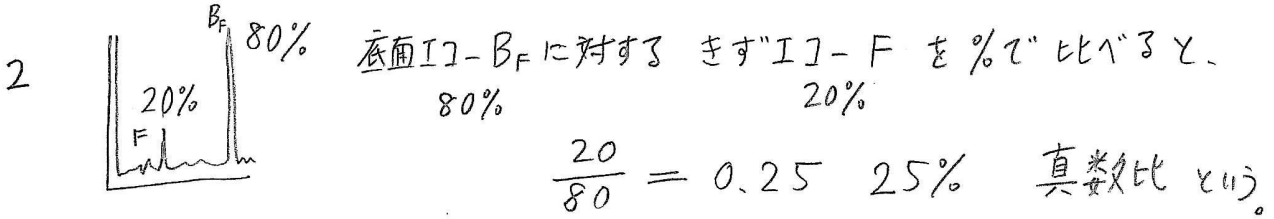 2
B_F 80%
20%
F
底面エコーB_Fに対する きずエコーF を%で比べると、
80% 20%
20/80 = 0.25 25% 真数比 という。